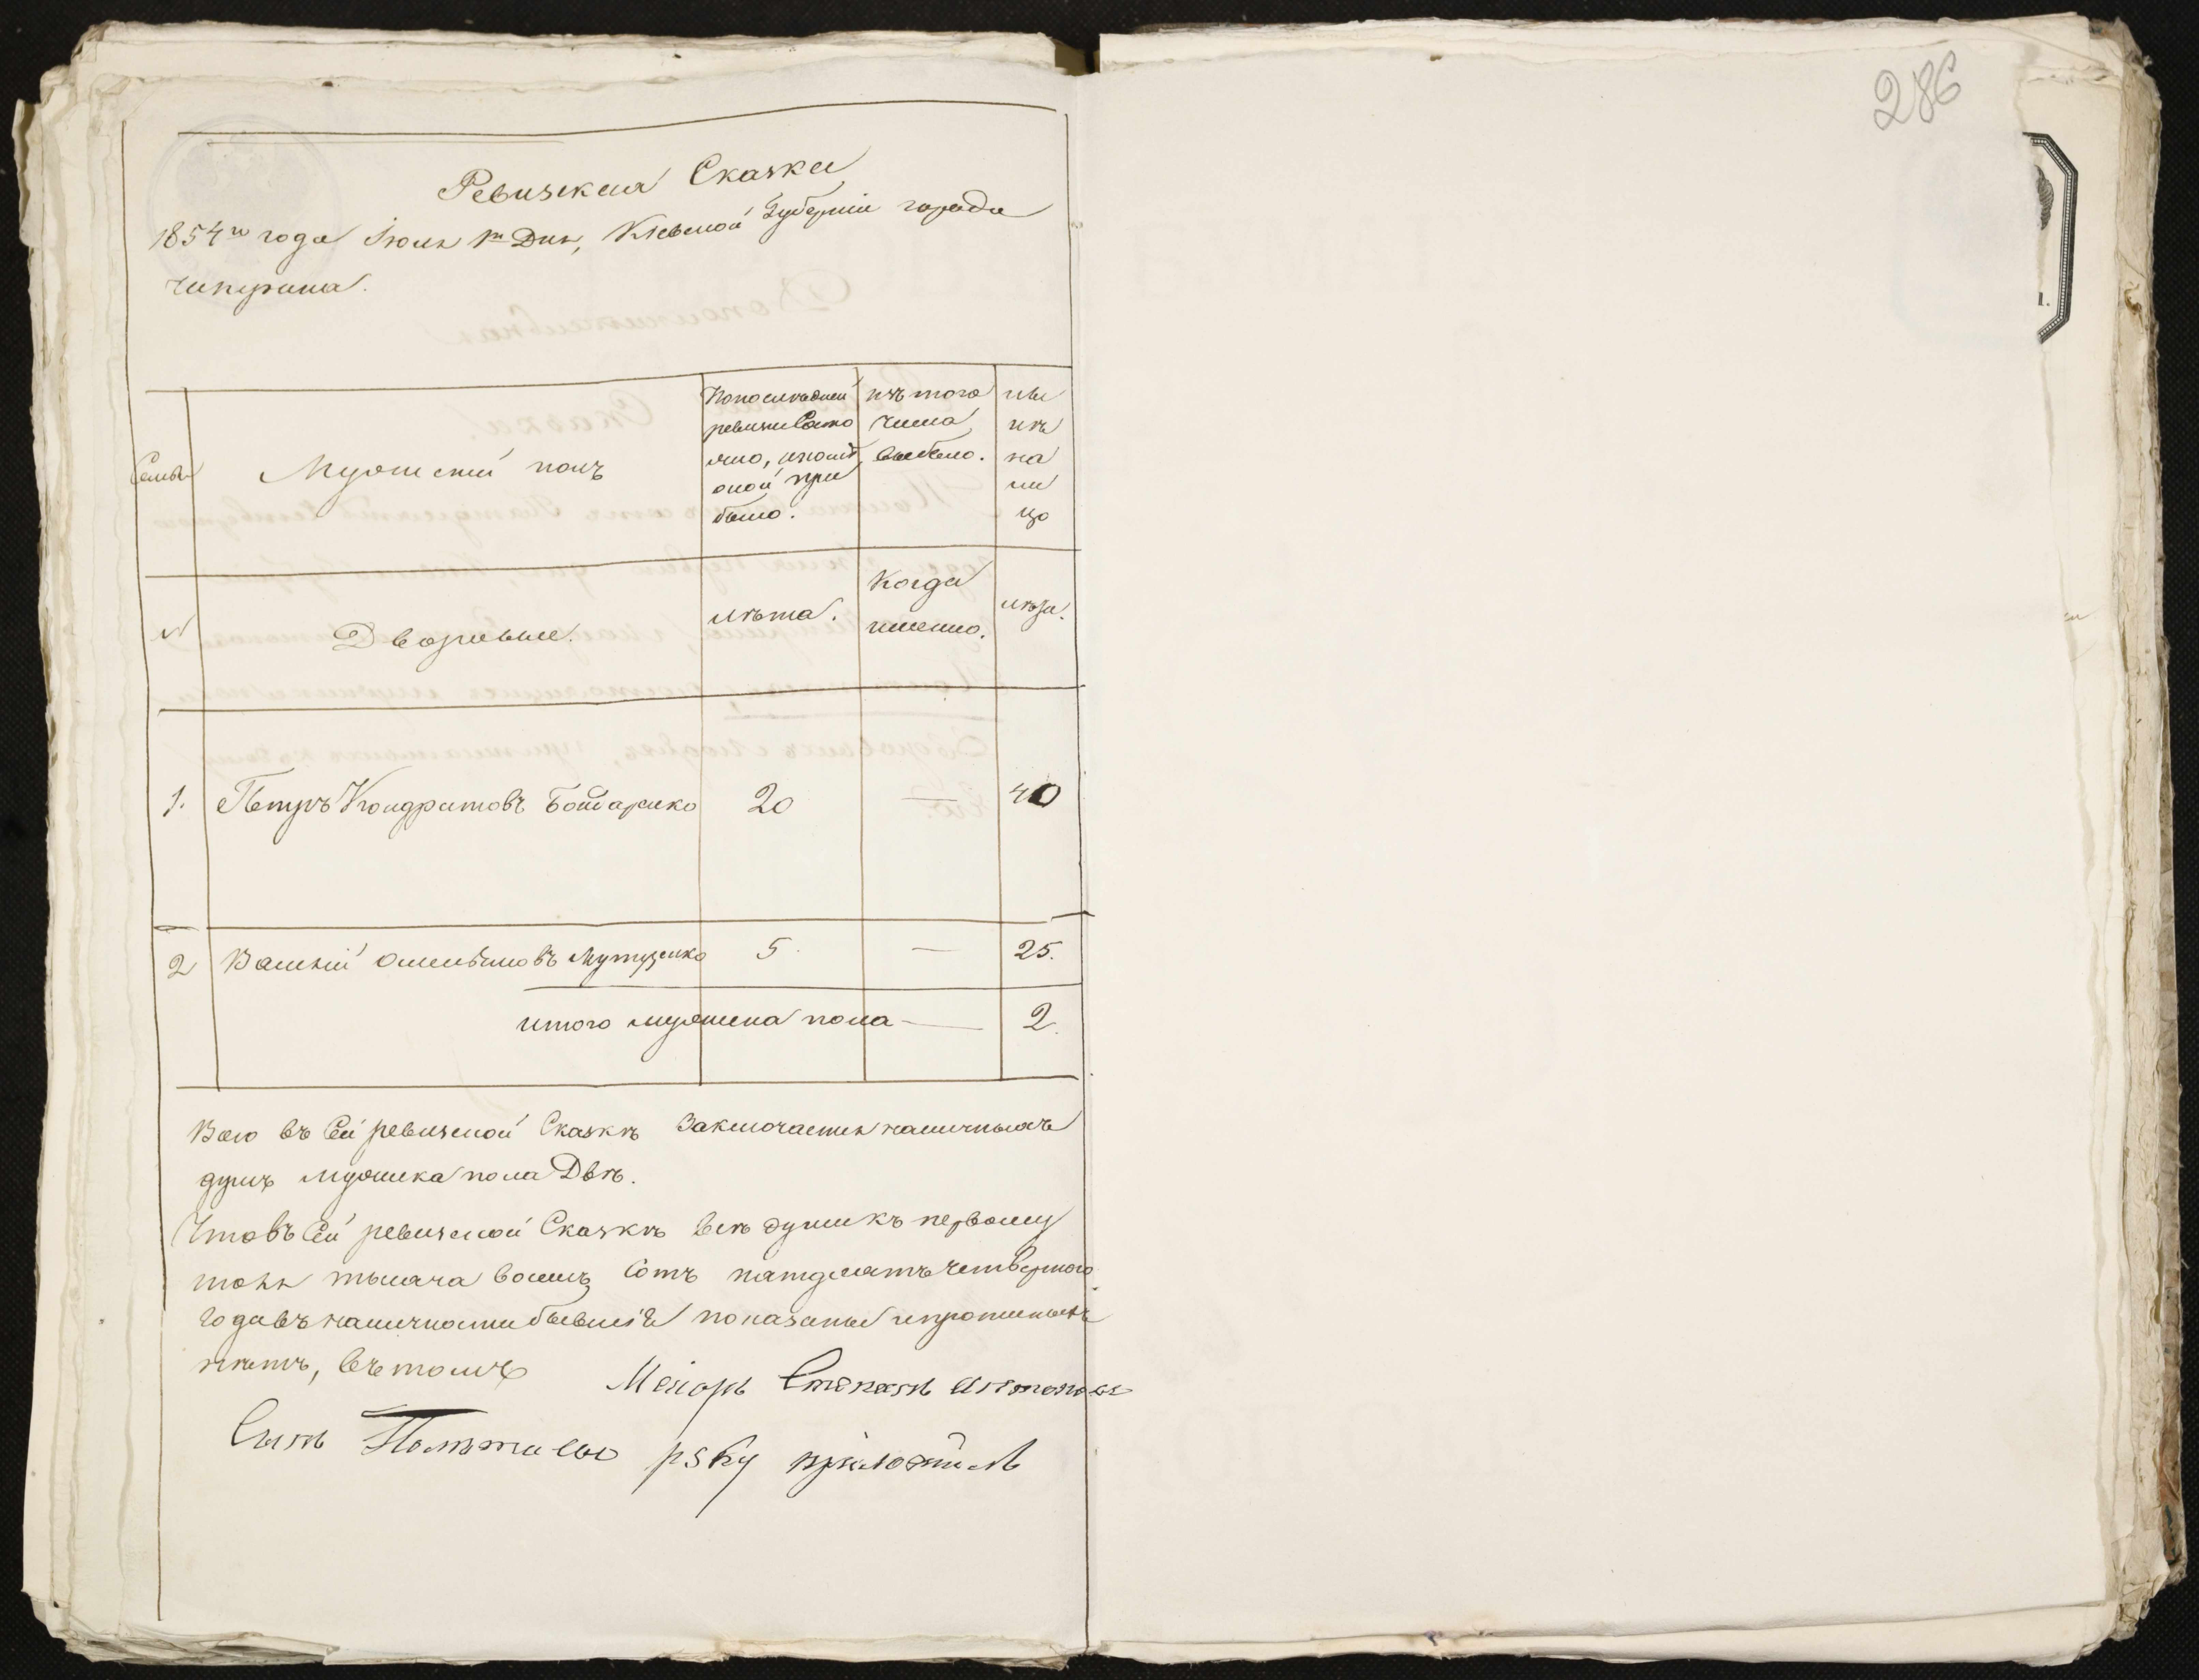 286
Ревизская Сказка
1854го года Июня 1го Дня, Кіевской Губерніи города
Чигирина.
Семья
Мужескій полъ
По последней
ревизіи Состо
яло, и после
оной при
было.
изъ того
числа
выбыло.
ны
нѣ
на
ли
цо
№
Дворовые.
лѣта.
Когда
именно.
лѣта.
1. Петръ Кондратовъ Бондаренко 20 — 40
2 Василій Омельяновъ 5 — 25.
итого мужеска пола — 2.
Всего въ Сей ревизской Сказкѣ Заключается наличныхъ
душъ мужска пола Двѣ.
Что въ Сей ревизской Сказкѣ всѣ души къ первому
іюня тысяча восемь Сотъ пятдесятъ четвертого
Года въ наличности бывшіе показаны и прописныхъ
нѣтъ, въ томъ
Маіоръ Степанъ Антоновъ
Сынъ руку приложилъ